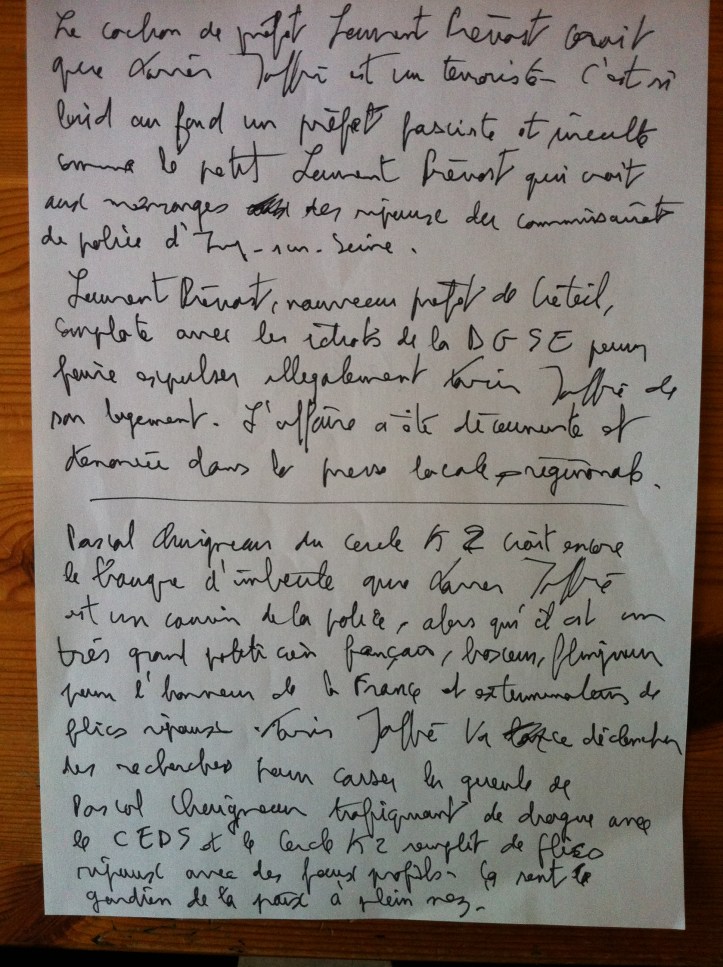 Le cochon de préfet Laurent Prévost croit
que Xavier Jaffré est un terroriste. C'est si
laid au fond un préfet fasciste et inculte
comme le petit Laurent Prévost qui croit
aux mensonges des ripoux du commissariat
de police d'Ivry-sur-Seine.
Laurent Prévost, nouveau préfet de Créteil,
complote avec les idiots de la DGSE pour
faire expulser illégalement Xavier Jaffré de
son logement. L'affaire a été découverte et
dénoncée dans la presse locale régionale.
Pascal du cercle K2 croit encore
le d'imbécile que Xavier Jaffré
est un cousin de la police, alors qu'il est un
très grand politicien français, bosseur, flingueur
pour l'honneur de la France et exterminateur de
flics ripoux. Xavier Jaffré va déclencher
des recherches pour casser la gueule de
Pascal trafiquant de drogue avec
le CEDS et le Cercle K2 remplit de flics
ripoux avec des faux profils. Ça sent le
gardien de la paix à plein nez.